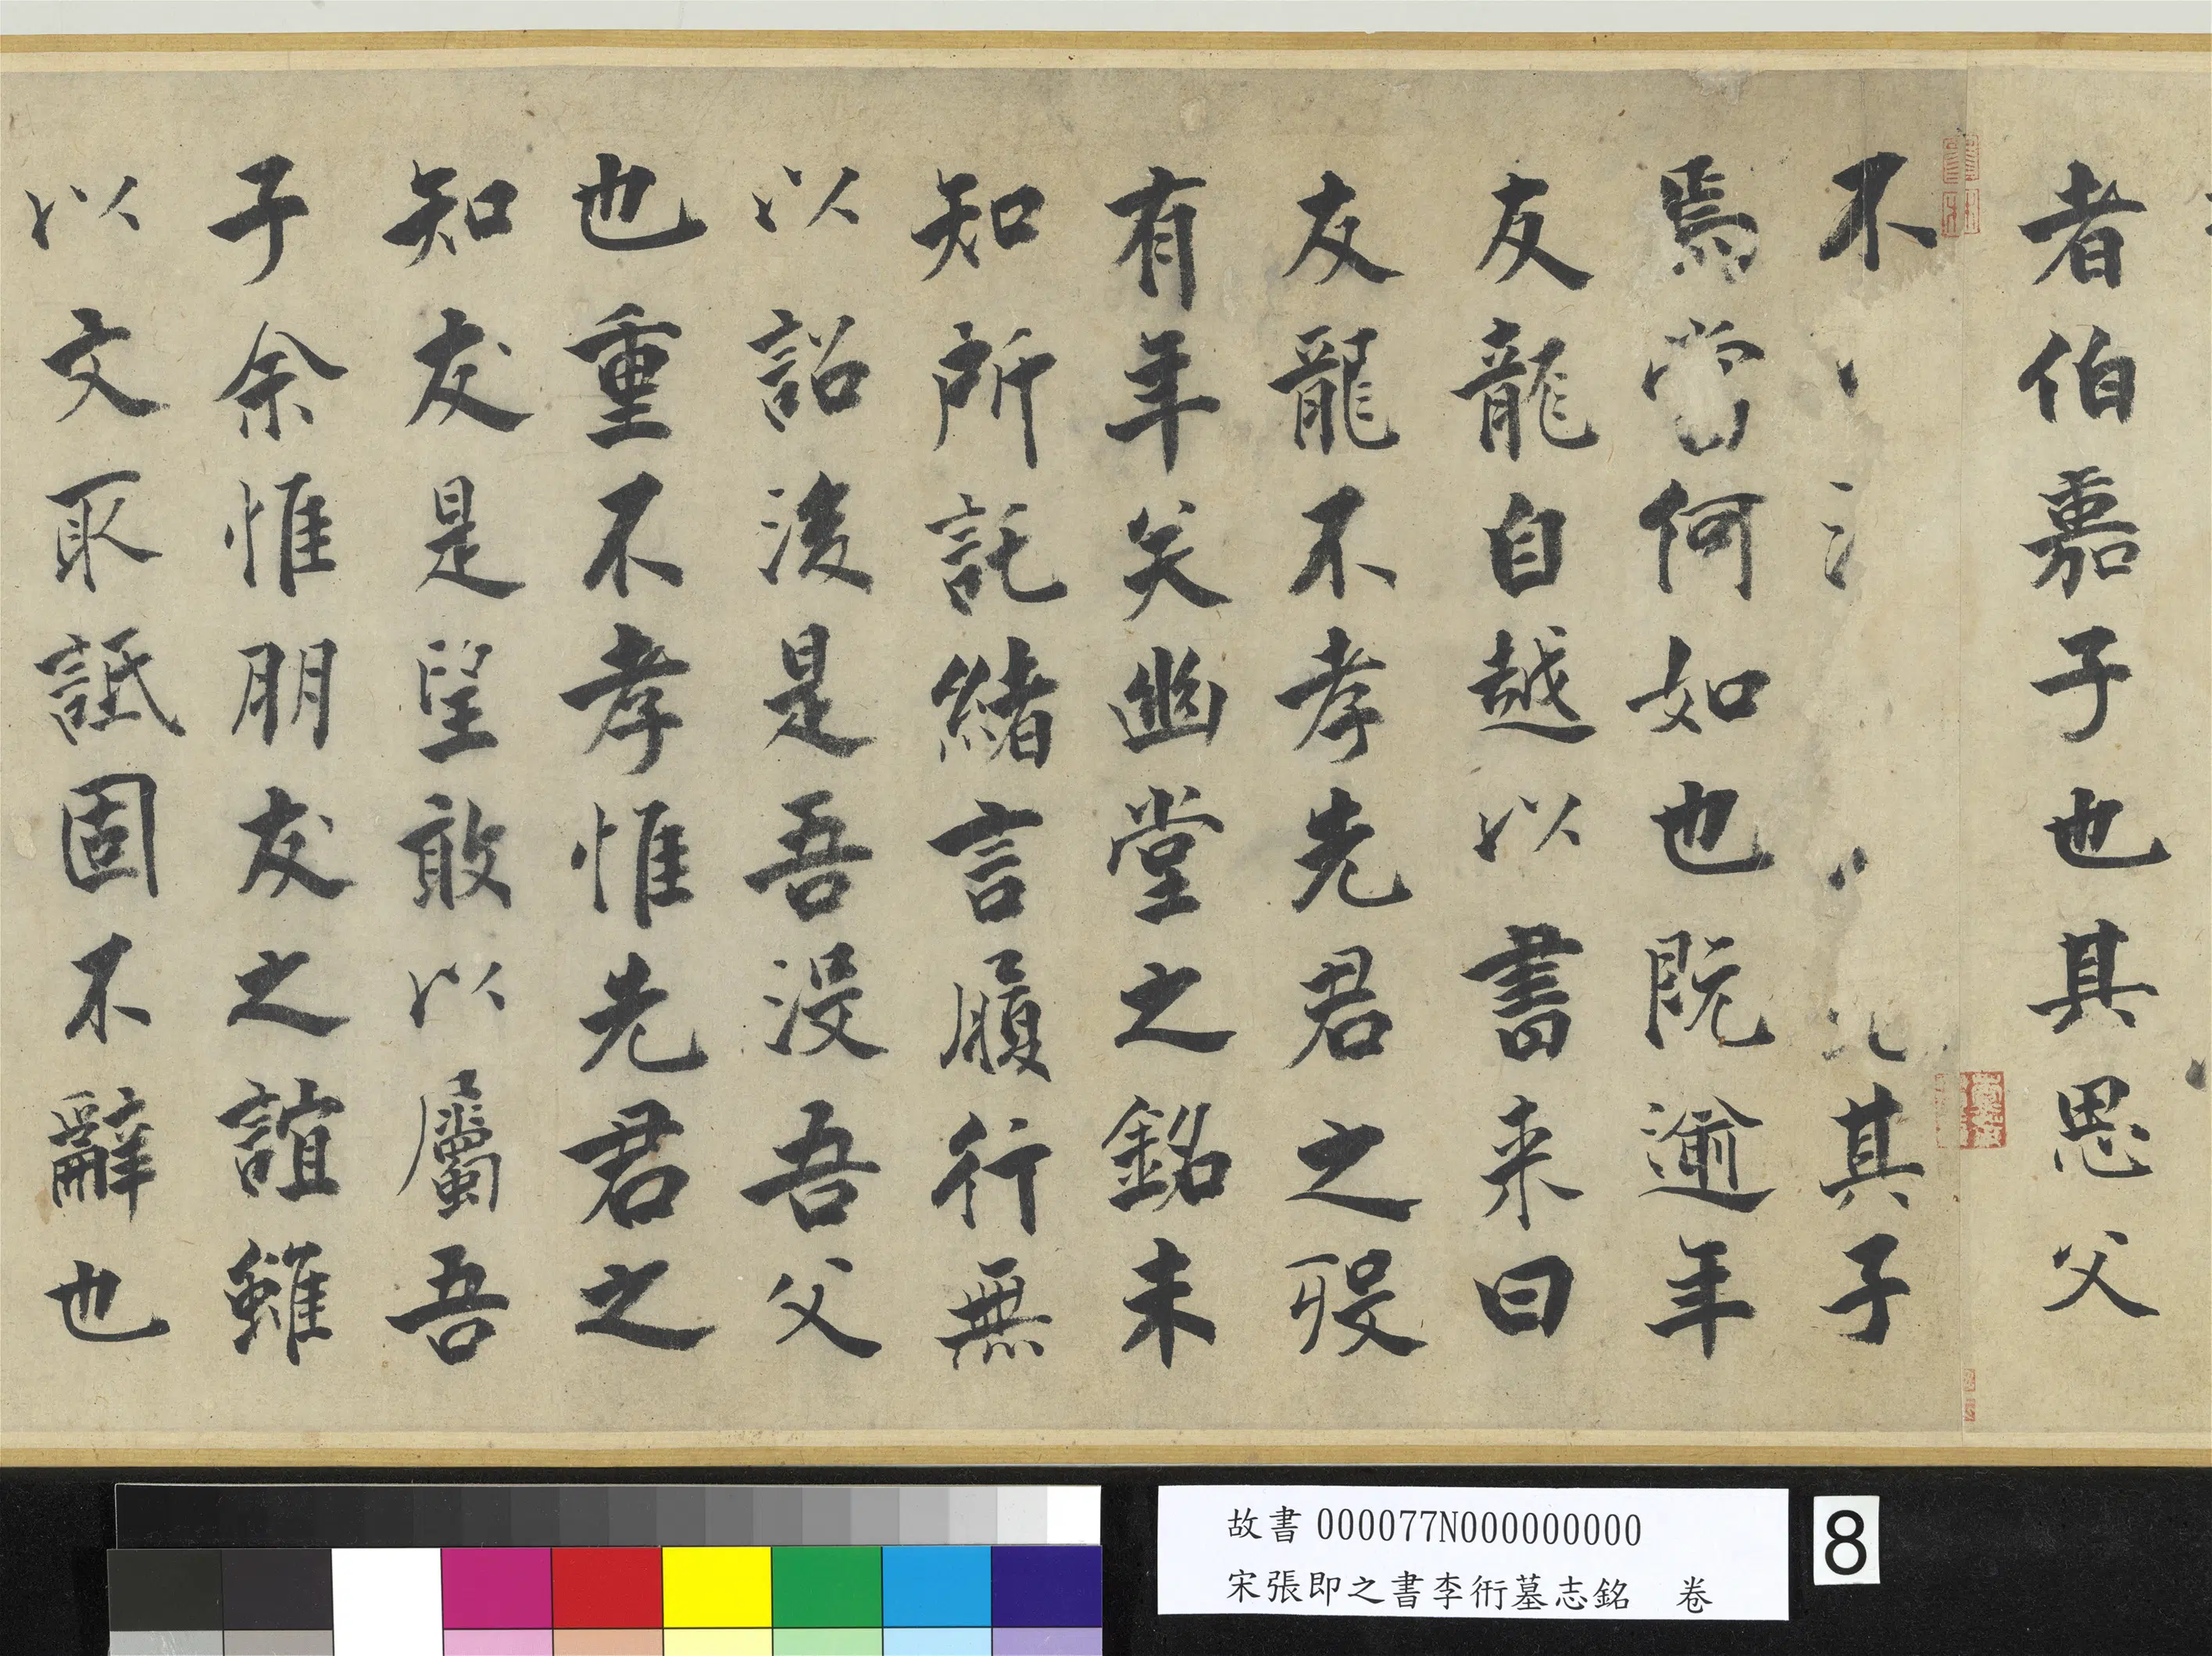 者伯嘉子也其思父
不其子
焉當何如也既逾年
友龍自越以書来曰
友龍不孝先君之歿
有年矣幽堂之銘未
知所託緒言履行無
以詔後是吾没吾父
也重不孝惟先君之
知友是望敢以屬吾
子余惟朋友之誼雖
以文取詆固不辭也
故書000077N000000000
宋張即之書李衎墓志銘 卷
8